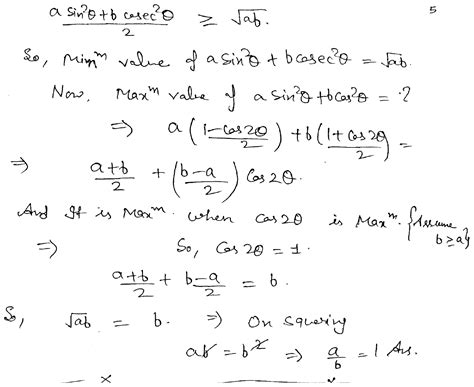 5
a sin²θ + b cosec²θ / 2 ≥ √ab.
So, Minᵐ value of a sin²θ + b cosec²θ = √ab.
Now, Maxᵐ value of a sin²θ + b cos²θ = ?
⇒ a((1-cos2θ)/2) + b((1+cos2θ)/2) =
⇒ (a+b)/2 + ((b-a)/2) Cos2θ.
And It is Maxᵐ. when cos2θ is Maxᵐ. {Assume b≥a}
⇒ So, Cos2θ = 1.
(a+b)/2 + (b-a)/2 = b.
So, √ab = b. ⇒ On squaring
ab = b² ⇒ a/b = 1 Ans.
x